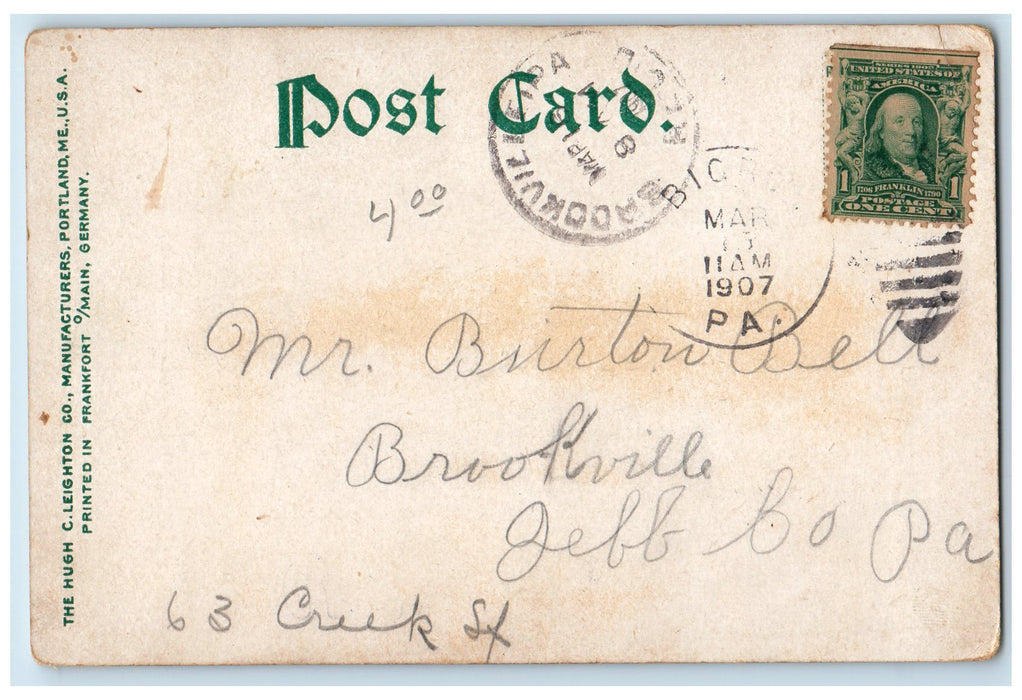 THE HUGH C. LEIGHTON CO., MANUFACTURERS, PORTLAND, ME., U.S.A.
PRINTED IN FRANKFORT O/MAIN, GERMANY.
Post Card.
BROOKVILLE, PA
MAR
8
REC'D.
SERIES 1902
UNITED STATES OF
AMERICA
1 1706 FRANKLIN 1790 1
POSTAGE
ONE CENT
MAR
13
11 AM
1907
PA.
4 00
Mr. Burton Bell
Brookville
Jeff Co Pa
63 Creek St